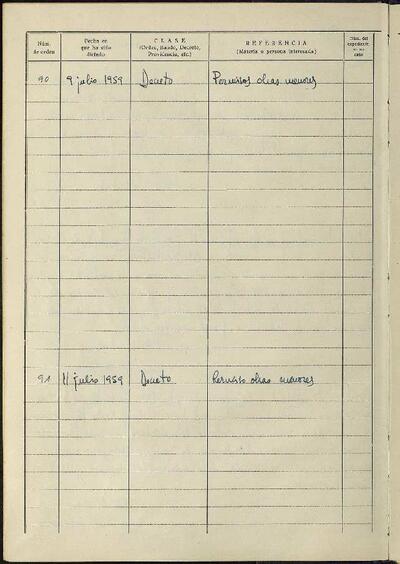 Núm. de orden
Fecha en que ha sido dictado
CLASE (Orden, Bando, Decreto, Providencia, etc.)
REFERENCIA (Materia o persona interesada)
Núm. del expediente en su caso
90 9 julio 1959 Decreto Permisos obras menores
91 11 julio 1959 Decreto Permiso obras menores